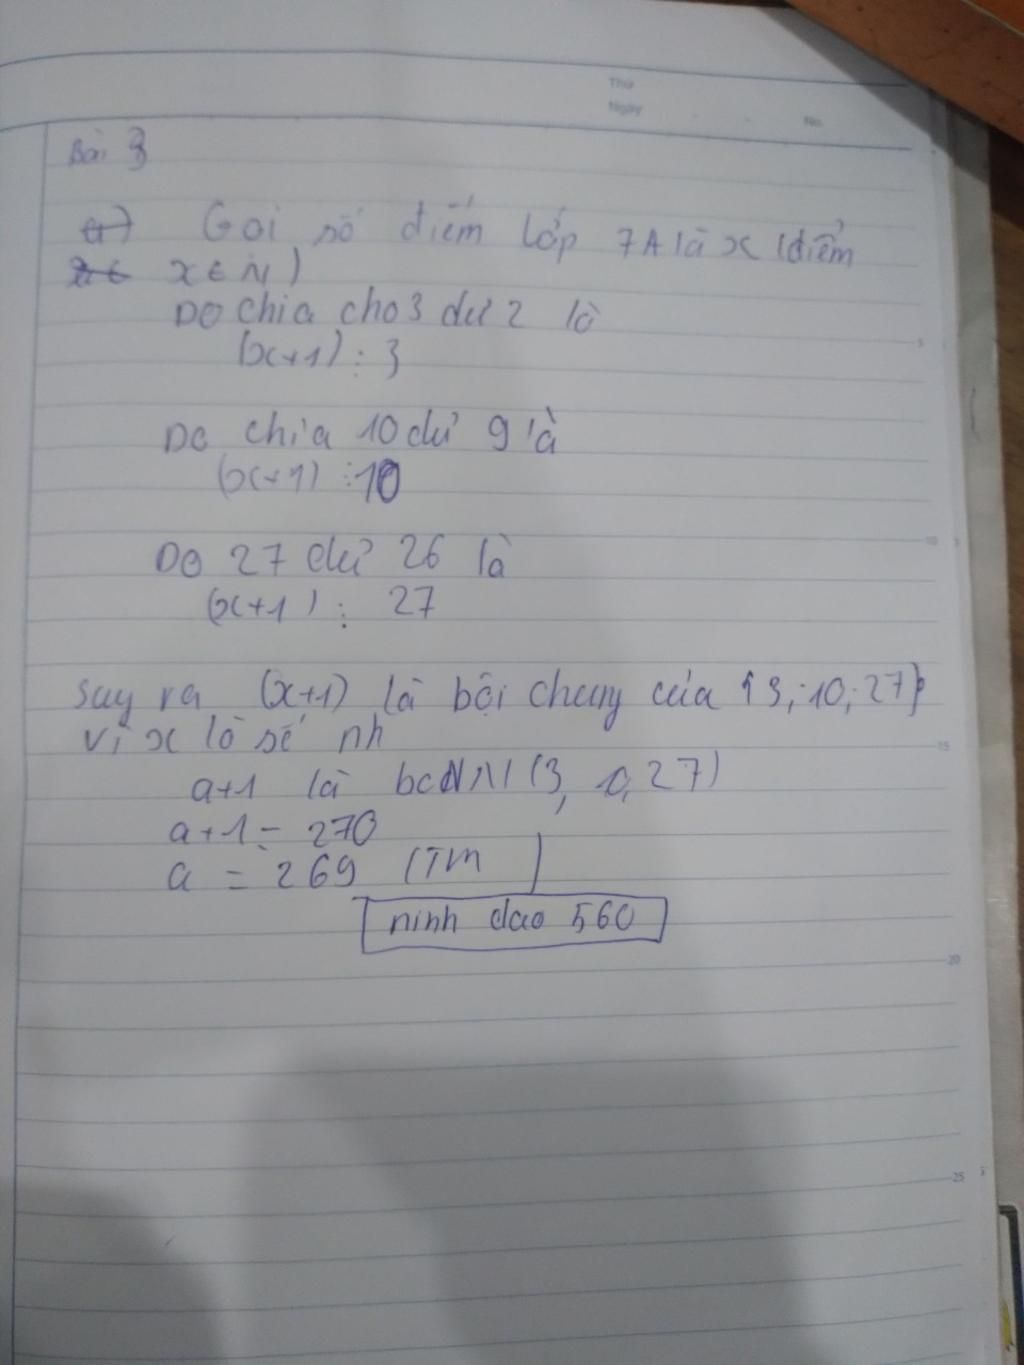 Thứ
Ngày
No.
Bài 3
a) Gọi số điếm lớp 7A là x (điểm
x ∈ x ∈ N)
Do chia cho 3 dư 2 là
(x+1) ⋮ 3
Do chia 10 dư 9 là
(x+1) ⋮ 10
Do 27 dư 26 là
(x+1) ⋮ 27
Suy ra (x+1) là bội chung của {3; 10; 27}
vì x là số nh
a+1 là bcNN (3, 10, 27)
a+1 = 270
a = 269 (TM)
ninh dao 560
5
10
15
20
25